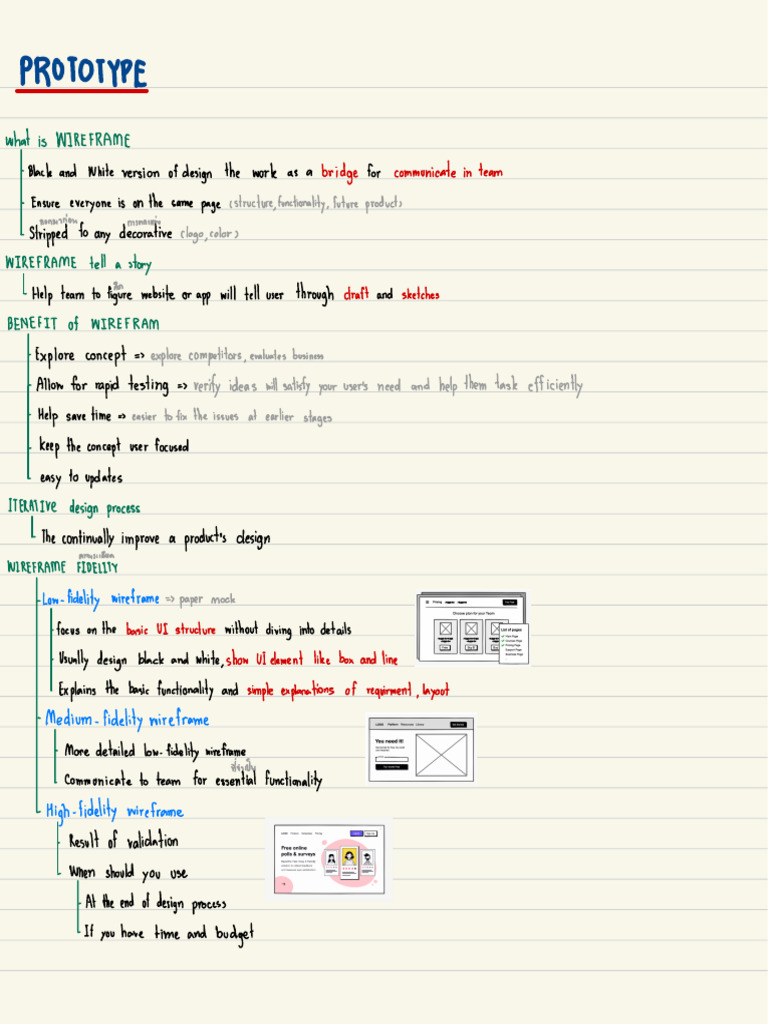 PROTOTYPE
What is WIREFRAME
Black and White version of design the work as a bridge for communicate in team
Ensure everyone is on the same page (structure, functionality, future product)
Stripped to any decorative (logo, color)
WIREFRAME tell a story
Help team to figure website or app will tell user through draft and sketches
BENEFIT of WIREFRAM
Explore concept => explore competitors, evaluates business
Allow for rapid testing => verify ideas will satisfy your user's need and help them task efficiently
Help save time => easier to fix the issues at earlier stages
keep the concept user focused
easy to updates
ITERATIVE design process
The continually improve a product's design
WIREFRAME FIDELITY
Low-fidelity wireframe => paper mock
focus on the basic UI structure without diving into details
Usually design black and white, show UI element like box and line
Explains the basic functionality and simple explanations of requirment, layout
Choose plan for your Team
List of pages
Medium-fidelity wireframe
More detailed low-fidelity wireframe
Communicate to team for essential functionality
You need it!
High-fidelity wireframe
Result of validation
When should you use
At the end of design process
If you have time and budget
Free online
polls & surveys